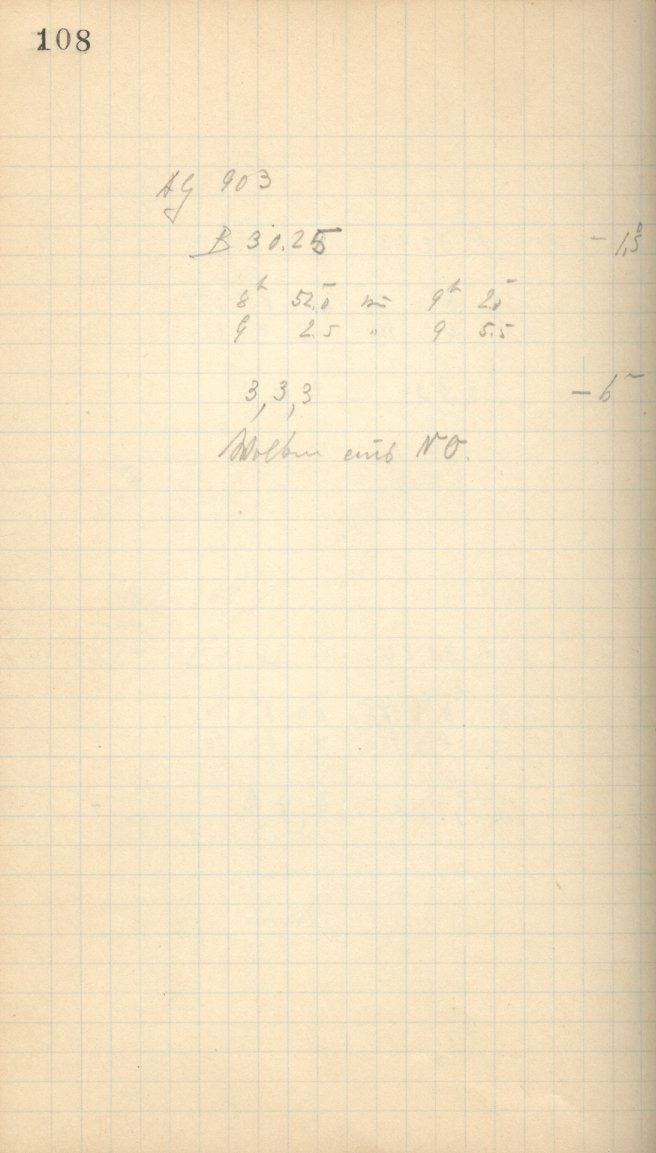 108
AG 903
B 30.25 - 1,5°
8h 52.0m bis 9h 2.5m
9 2.5 " 9 5.5
3, 3, 3 - 6m
Wolken aus NO.